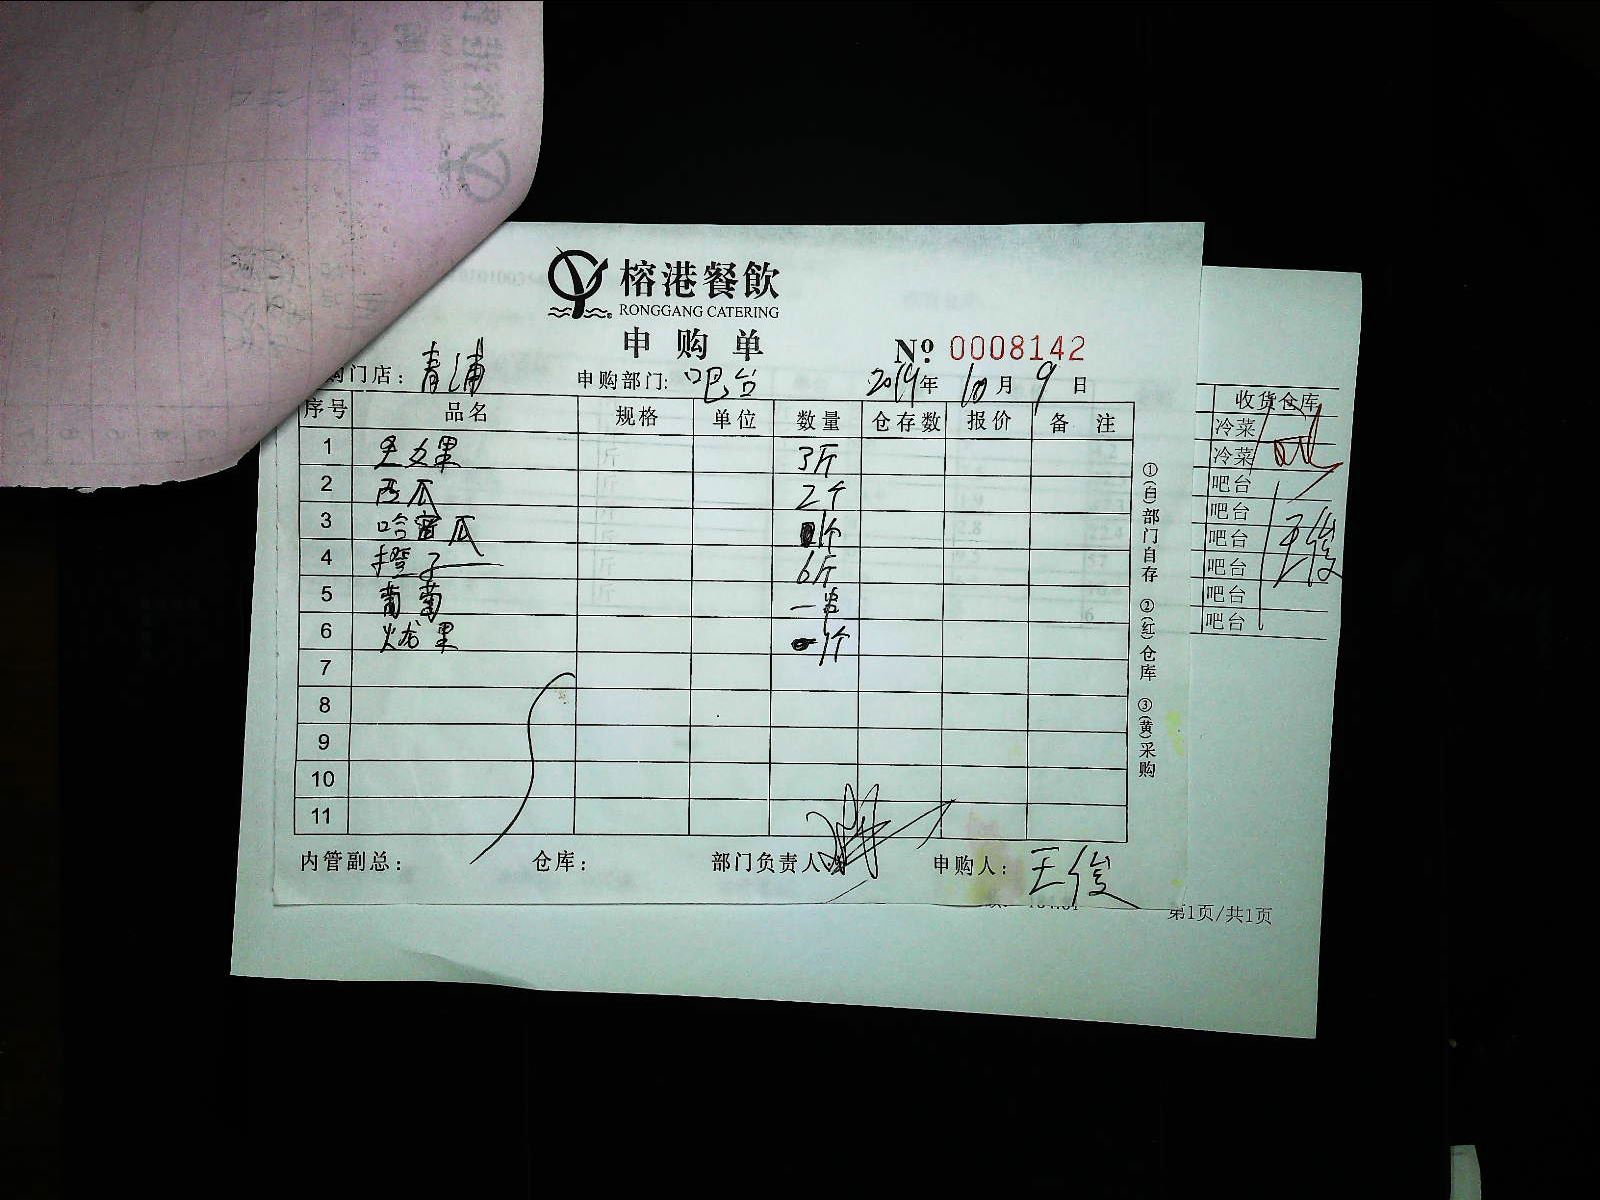 榕港餐飲
RONGGANG CATERING
申购单
№ 0008142
门店：青浦 申购部门：吧台 2019年10月9日
序号 品名 规格 单位 数量 仓存数 报价 备注
1 圣女果 3斤
2 西瓜 2个
3 哈密瓜 1个
4 橙子 6斤
5 葡萄 一串
6 火龙果 1个
7
8
9
10
11
内管副总： 仓库： 部门负责人： 申购人：王俊
①(白)部门自存 ②(红)仓库 ③(黄)采购
收货仓库
冷菜
冷菜
吧台
吧台
吧台
吧台
吧台
吧台
王俊
第1页/共1页